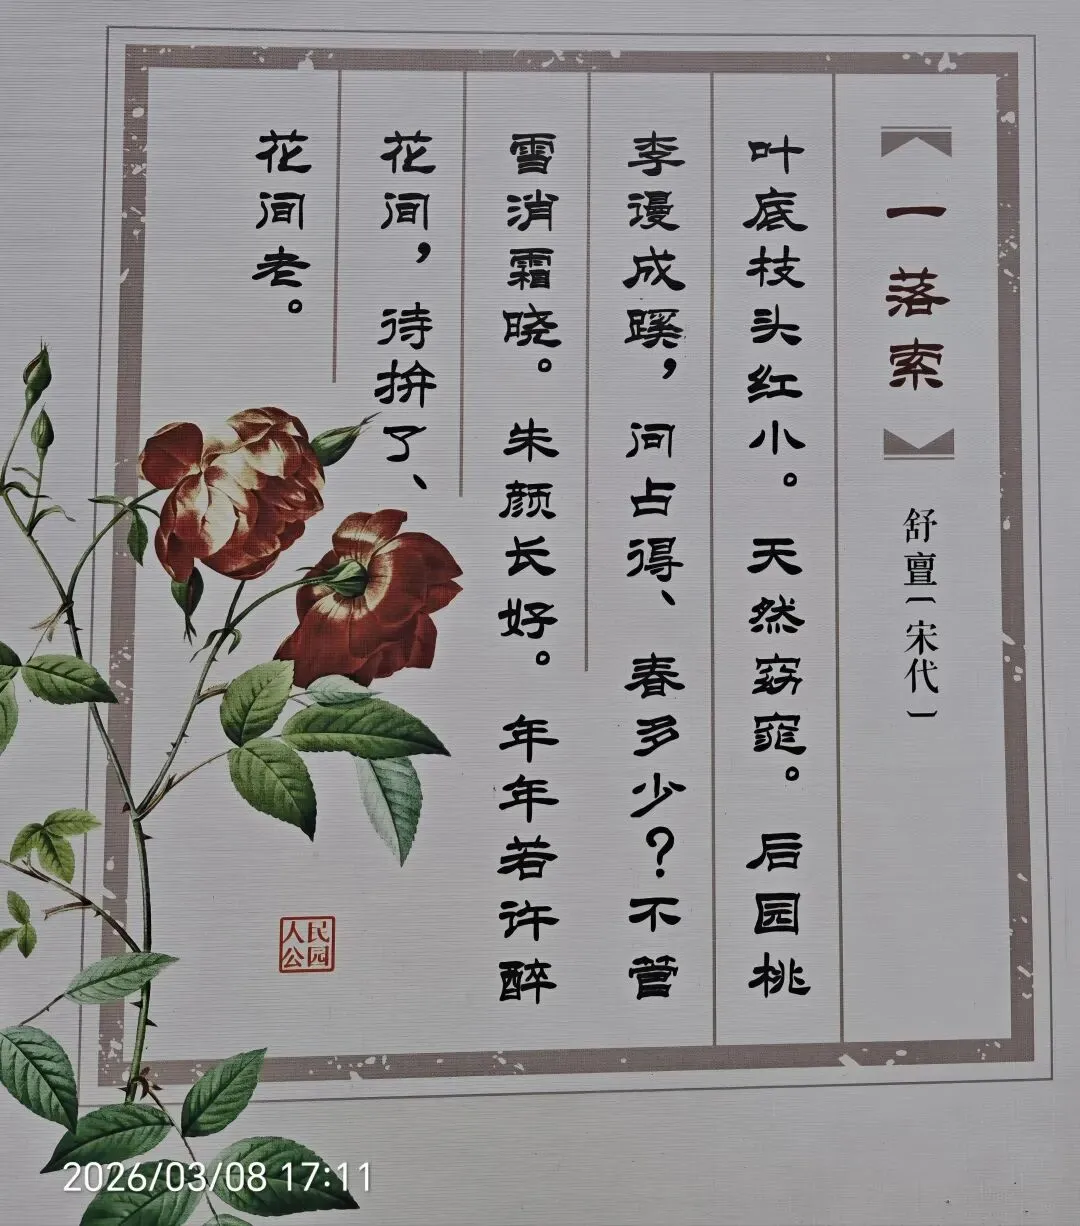 【一落索】
舒亶〔宋代〕
叶底枝头红小。天然窈窕。后园桃
李谩成蹊，问占得、春多少？不管
雪消霜晓。朱颜长好。年年若许醉
花间，待拚了、
花间老。
人民
公园
2026/03/08 17:11